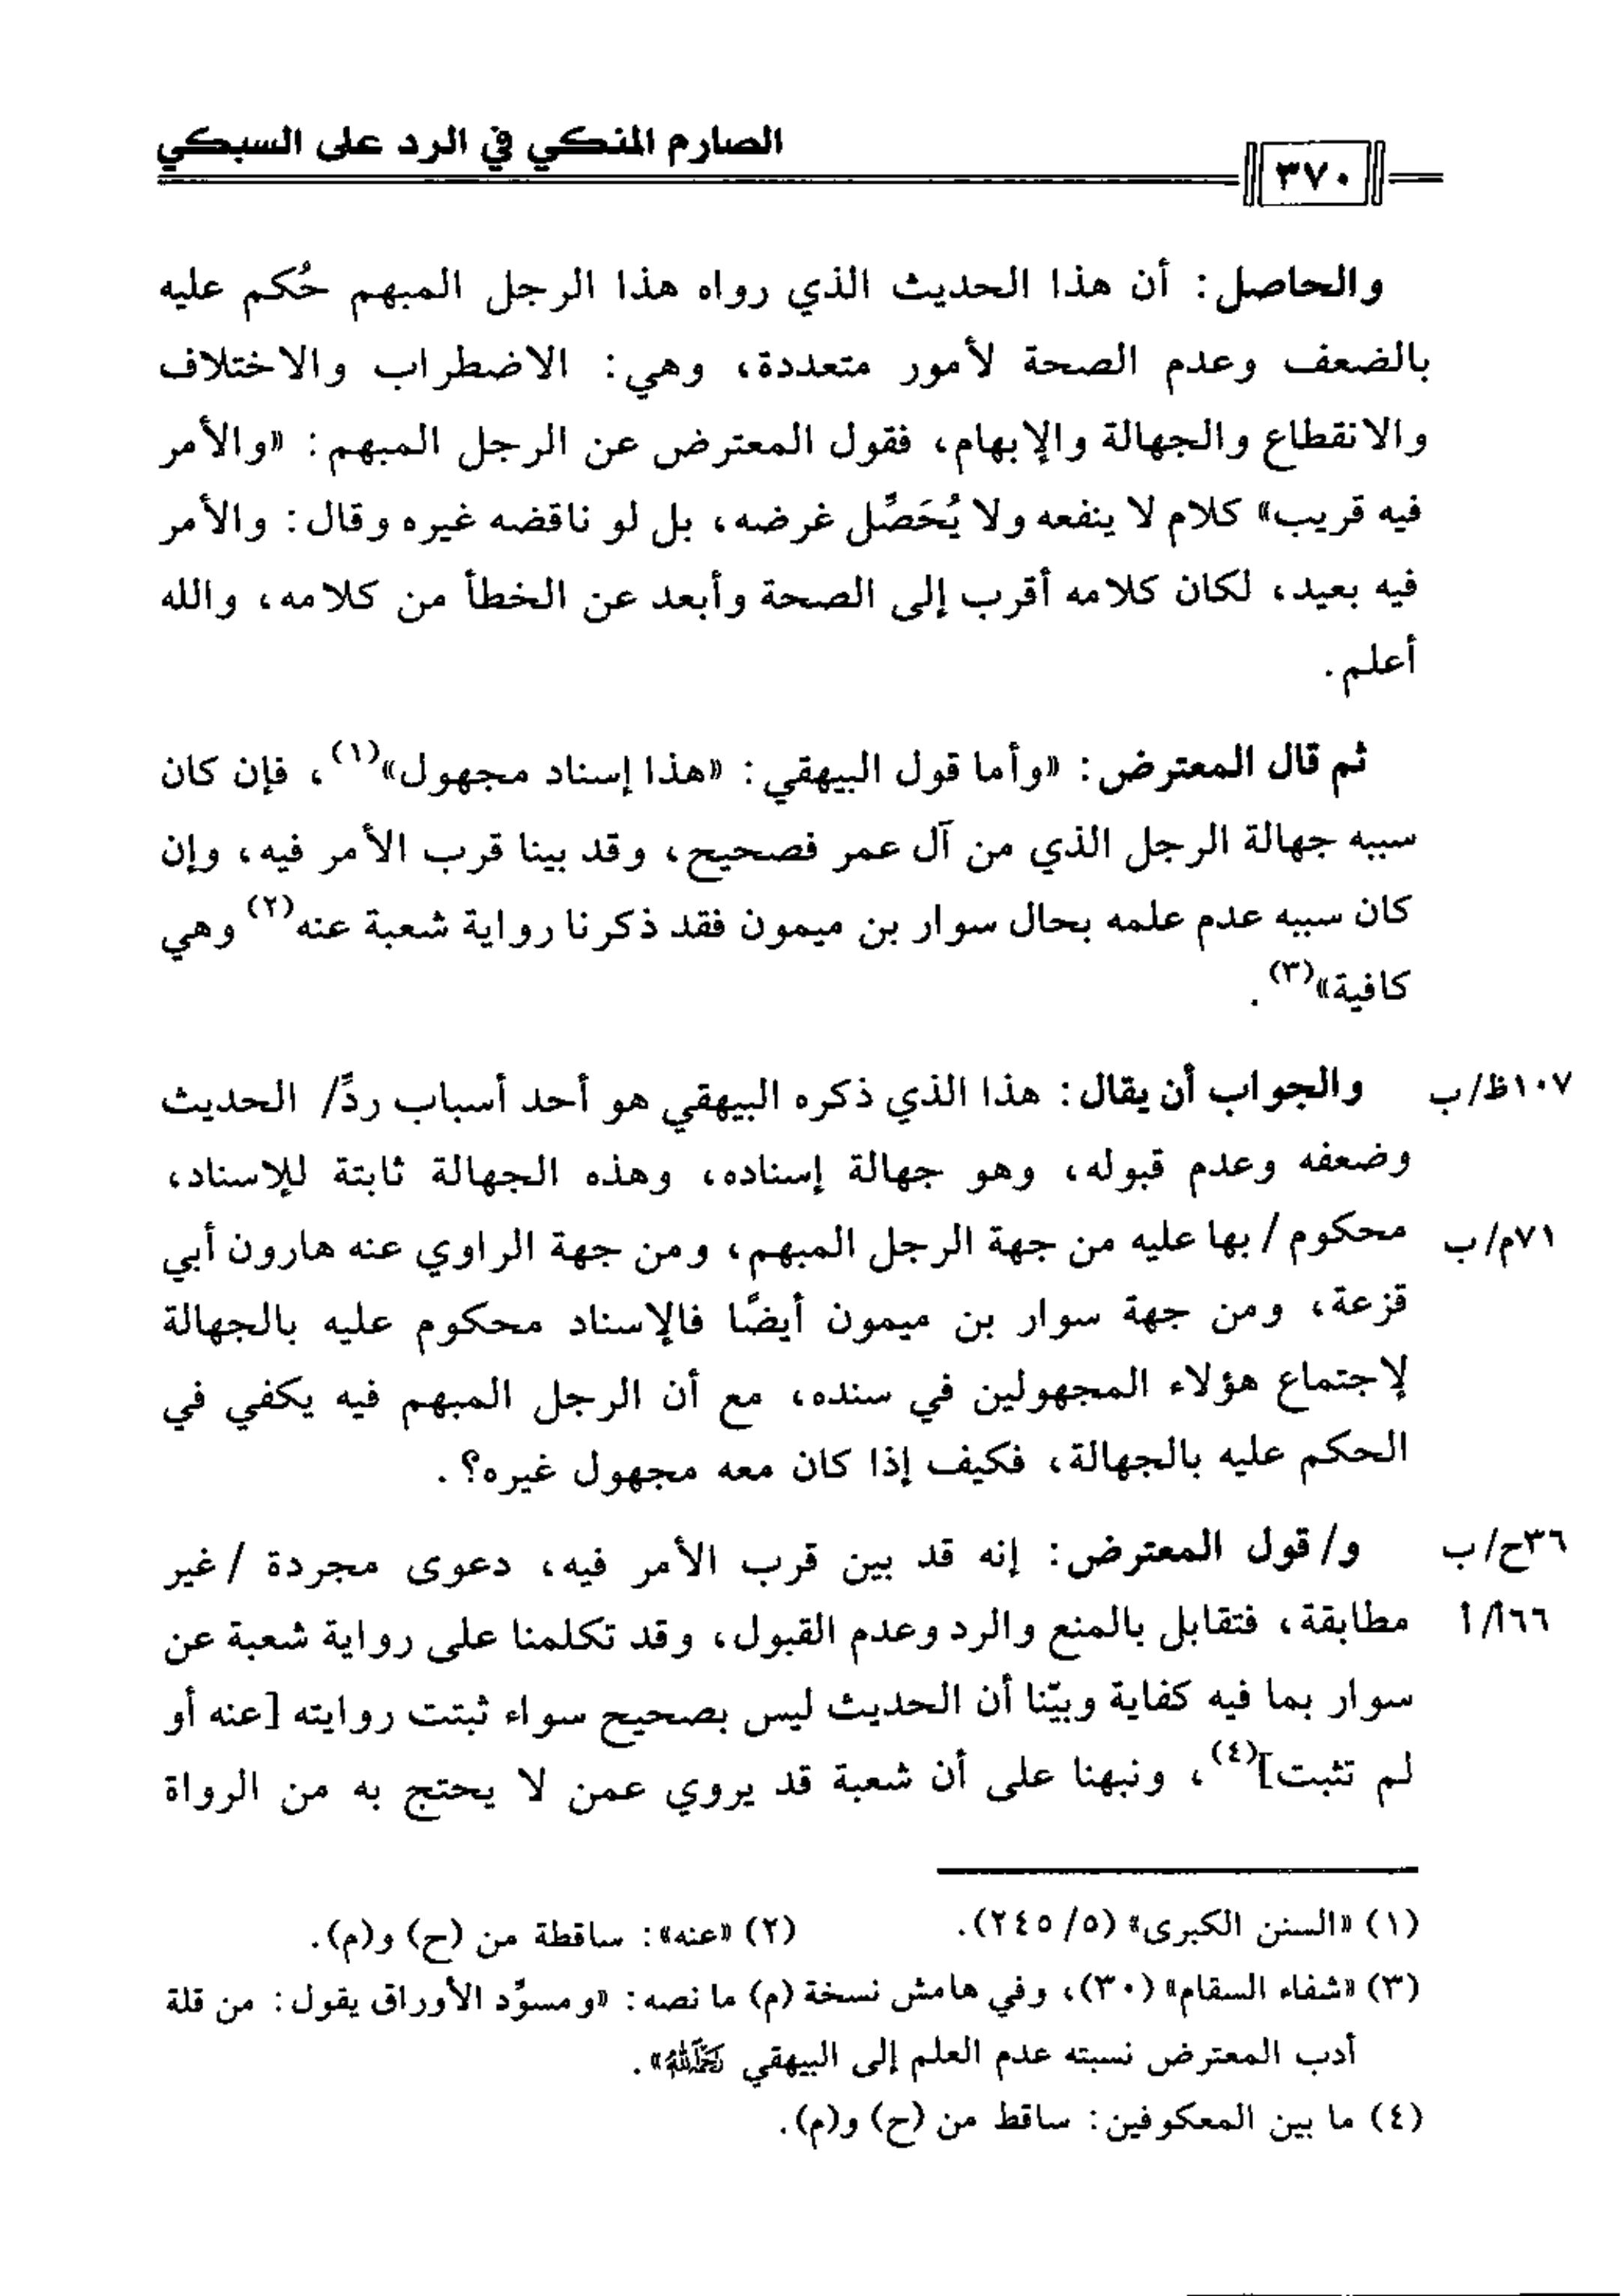 الصارم المنكي في الرد على السبكي
٣٧٠
والحاصل: أن هذا الحديث الذي رواه هذا الرجل المبهم حُكم عليه
بالضعف وعدم الصحة لأمور متعددة، وهي: الاضطراب والاختلاف
والانقطاع والجهالة والإبهام، فقول المعترض عن الرجل المبهم: «والأمر
فيه قريب» كلام لا ينفعه ولا يُحَصِّل غرضه، بل لو ناقضه غيره وقال: والأمر
فيه بعيد، لكان كلامه أقرب إلى الصحة وأبعد عن الخطأ من كلامه، والله
أعلم.
ثم قال المعترض: «وأما قول البيهقي: «هذا إسناد مجهول»(١)، فإن كان
سببه جهالة الرجل الذي من آل عمر فصحيح، وقد بينا قرب الأمر فيه، وإن
كان سببه عدم علمه بحال سوار بن ميمون فقد ذكرنا رواية شعبة عنه(٢) وهي
كافية»(٣).
١٠٧ظ/ب والجواب أن يقال: هذا الذي ذكره البيهقي هو أحد أسباب ردِّ/ الحديث
وضعفه وعدم قبوله، وهو جهالة إسناده، وهذه الجهالة ثابتة للإسناد،
٧١م/ب محكوم/ بها عليه من جهة الرجل المبهم، ومن جهة الراوي عنه هارون أبي
قزعة، ومن جهة سوار بن ميمون أيضًا فالإسناد محكوم عليه بالجهالة
لإجتماع هؤلاء المجهولين في سنده، مع أن الرجل المبهم فيه يكفي في
الحكم عليه بالجهالة، فكيف إذا كان معه مجهول غيره؟.
٣٦ح/ب و/ قول المعترض: إنه قد بين قرب الأمر فيه، دعوى مجردة /غير
٦٦أ/أ مطابقة، فتقابل بالمنع والرد وعدم القبول، وقد تكلمنا على رواية شعبة عن
سوار بما فيه كفاية وبيّنا أن الحديث ليس بصحيح سواء ثبتت روايته [عنه أو
لم تثبت](٤)، ونبهنا على أن شعبة قد يروي عمن لا يحتج به من الرواة
(١) «السنن الكبرى» (٥/ ٢٤٥). (٢) «عنه»: ساقطة من (ح) و(م).
(٣) «شفاء السقام» (٣٠)، وفي هامش نسخة (م) ما نصه: «ومسوِّد الأوراق يقول: من قلة
أدب المعترض نسبته عدم العلم إلى البيهقي رَحِمَهُ اللهُ».
(٤) ما بين المعكوفين: ساقط من (ح) و(م).